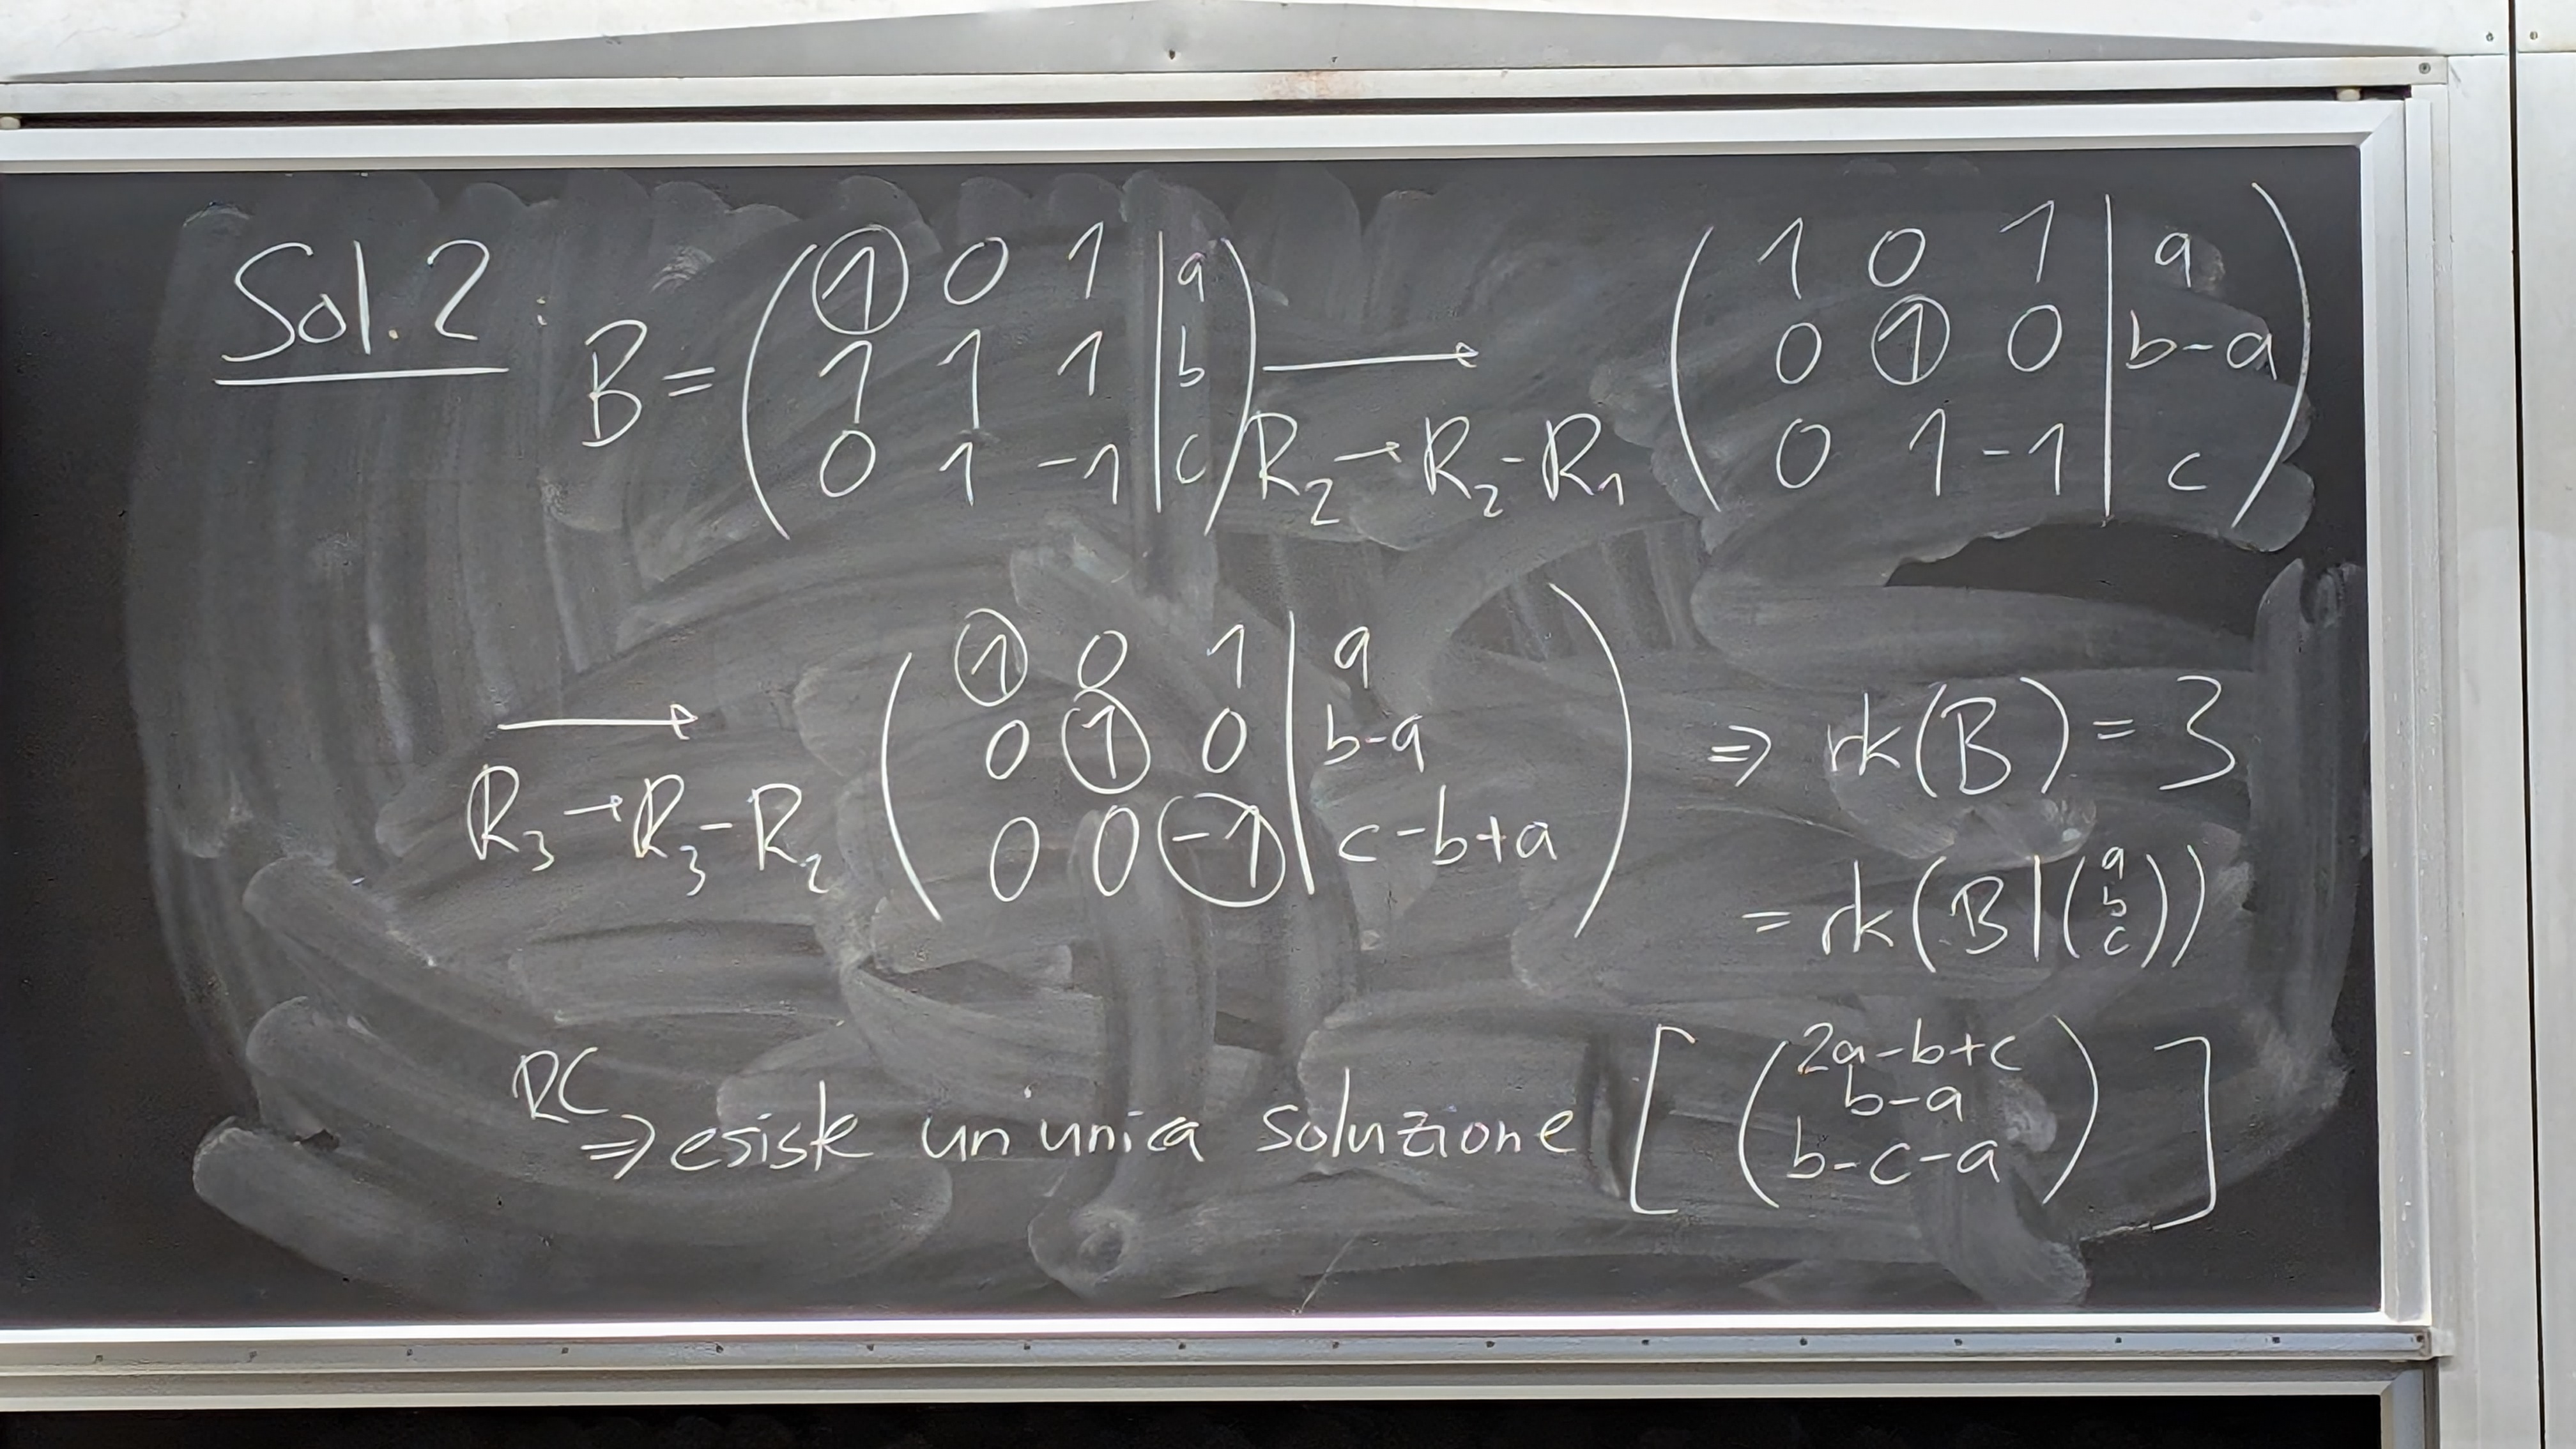 Sol. 2:
B = ( 1 0 1 | a
1 1 1 | b
0 1 -1 | c ) → R₂→R₂-R₁
( 1 0 1 | a
0 1 0 | b-a
0 1 -1 | c )
→ R₃→R₃-R₂
( 1 0 1 | a
0 1 0 | b-a
0 0 -1 | c-b+a )
⇒ rk(B) = 3
= rk(B|(a
b
c))
RC
⇒ esiste un'unica soluzione [ ( 2a-b+c
b-a
b-c-a ) ]